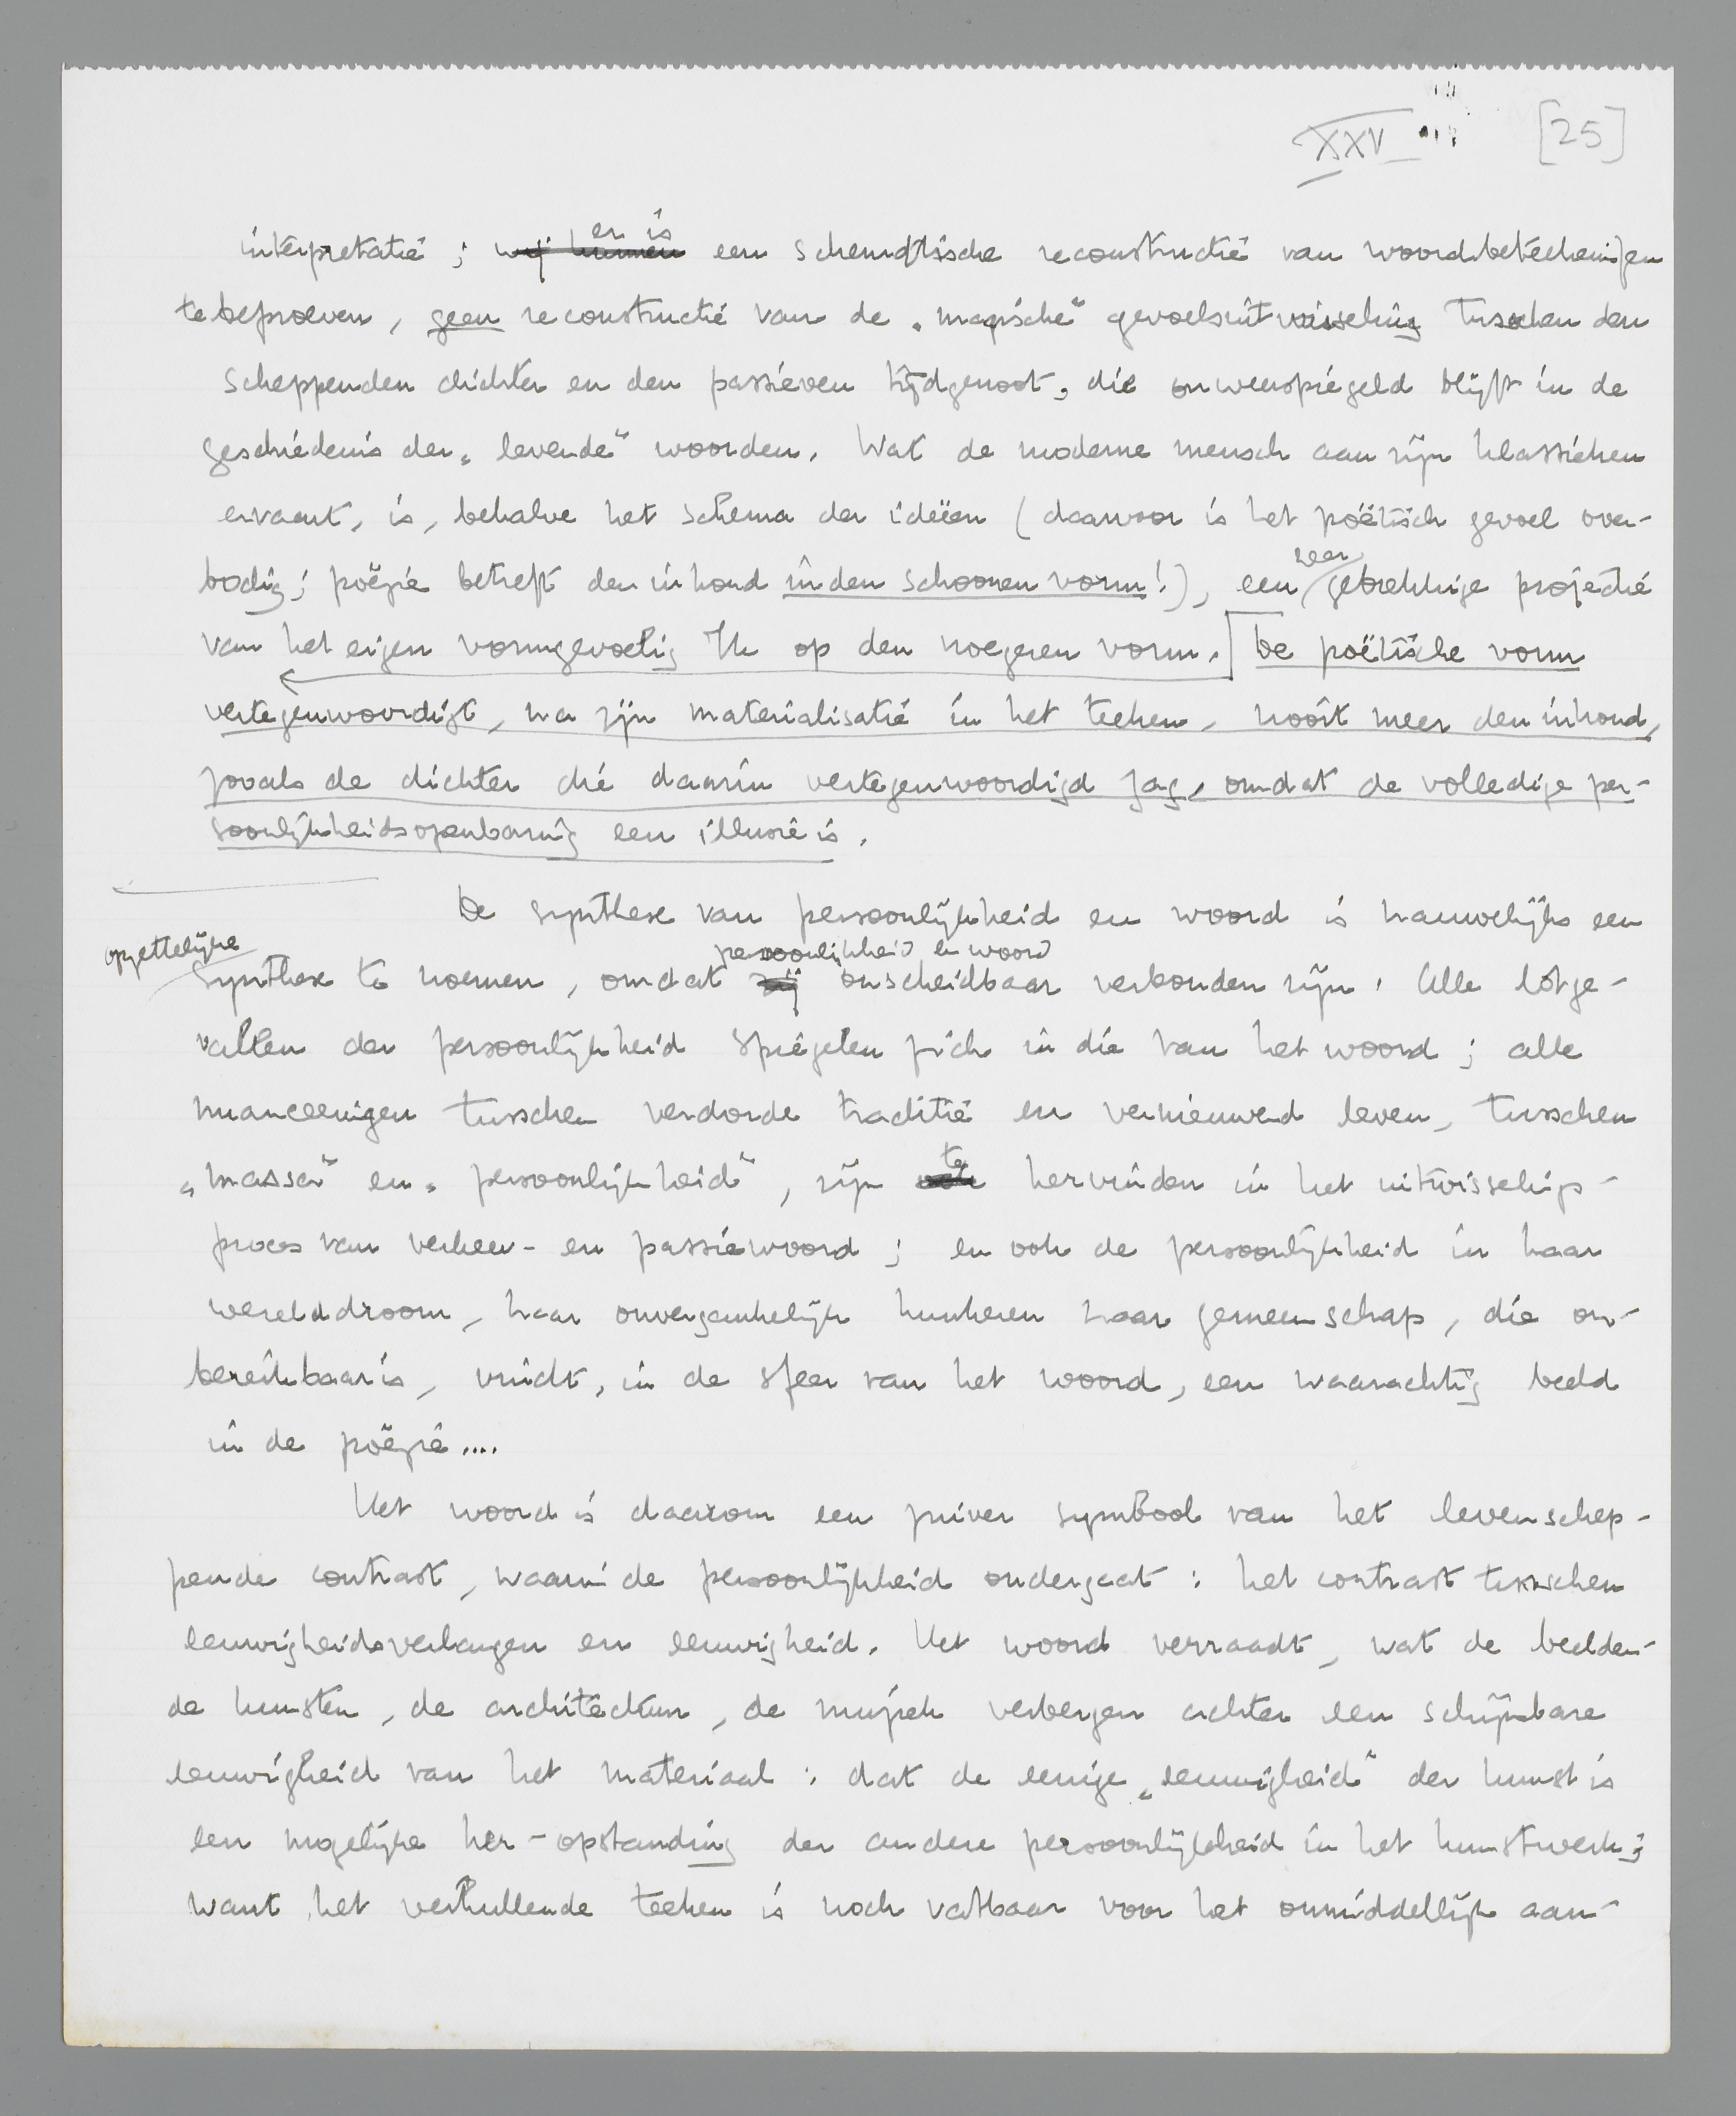 XXV [25]
er is
interpretatie; wij kunnen een schematische reconstructie van woordbeteekenissen
te beproeven, geen reconstructie van de „magische" gevoelsuitwisseling tusschen den
scheppenden dichter en den passieven tijdgenoot, die onweerspiegeld blijft in de
geschiedenis der „levende" woorden. Wat de moderne mensch aan zijn klassieken
ervaart, is, behalve het schema der ideëen (daarvoor is het poëtisch gevoel over-
zeer
bodig; poëzie betreft den inhoud in den schoonen vorm!), een gebrekkige projectie
van het eigen vormgevoelig Ik op den vroegeren vorm. De poëtische vorm
vertegenwoordigt, na zijn materialisatie in het teeken, nooit meer den inhoud,
zooals de dichter die daarin vertegenwoordigd zag, omdat de volledige per-
soonlijkheidsopenbaring een illusie is.
De synthese van persoonlijkheid en woord is nauwelijks een
opzettelijke persoonlijkheid en woord
synthese te noemen, omdat zij onscheidbaar verbonden zijn. Alle lotge-
vallen der persoonlijkheid spiegelen zich in die van het woord; alle
nuanceeringen tusschen verdorde traditie en vernieuwend leven, tusschen
te
„massa" en „persoonlijkheid", zijn hervinden in het uitwisselings-
proces van verkeer- en passiewoord; en ook de persoonlijkheid in haar
werelddroom, haar onvergankelijk hunkeren naar gemeenschap, die on-
bereikbaar is, vindt, in de sfeer van het woord, een waarachtig beeld
in de poëzie....
Het woord is daarom een zuiver symbool van het levenschep-
pende contrast, waarin de persoonlijkheid ondergaat: het contrast tusschen
eeuwigheidsverlangen en eeuwigheid. Het woord verraadt, wat de beelden-
de kunsten, de architectuur, de muziek verbergen achter een schijnbare
eeuwigheid van het materiaal: dat de eenige „eeuwigheid" der kunst is
een mogelijke her-opstanding der andere persoonlijkheid in het kunstwerk;
want het verhullende teeken is noch vatbaar voor het onmiddellijk aan-